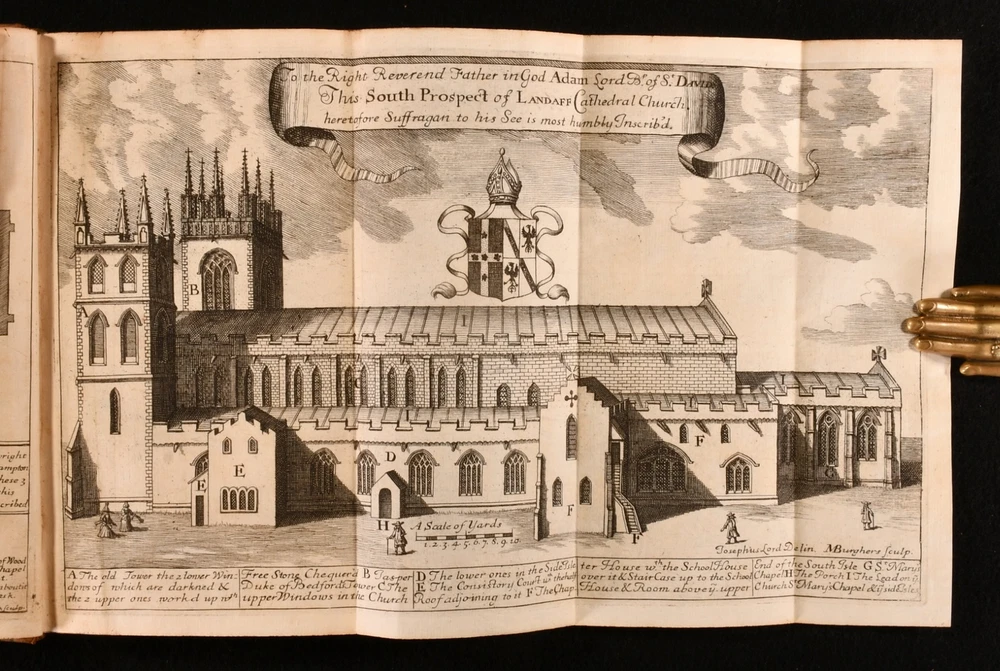 To the Right Reverend Father in God Adam Lord Bp. of St. Davids
This South Prospect of Landaff Cathedral Church,
heretofore Suffragan to his See is most humbly Inscrib'd.
B
I
C
I
I
F
D
E
E
G
F
H
A Scale of Yards
1. 2. 3. 4. 5. 6. 7. 8. 9. 10
F
Josephus Lord Delin. MBurghers sculp.
A The old Tower the 2 lower Win-
dows of which are darkned &
the 2 upper ones work'd up wth
Free Stone Chequer'd B Jasper
Duke of Bedfords Tower C The
upper Windows in the Church
D The lower ones in the Side Isle
E The Consistory Court wth the
Roof adjoining to it F The Chap
ter House wth the School House
over it & Stair Case up to the School
House & Room above ye upper
End of the South Isle G St. Mary's
Chapel H The Porch I The Lead on ye
Church St Marys Chapel & ye side Isles
wright
ampton
hese 3
his
cribed
of Wood
hapel